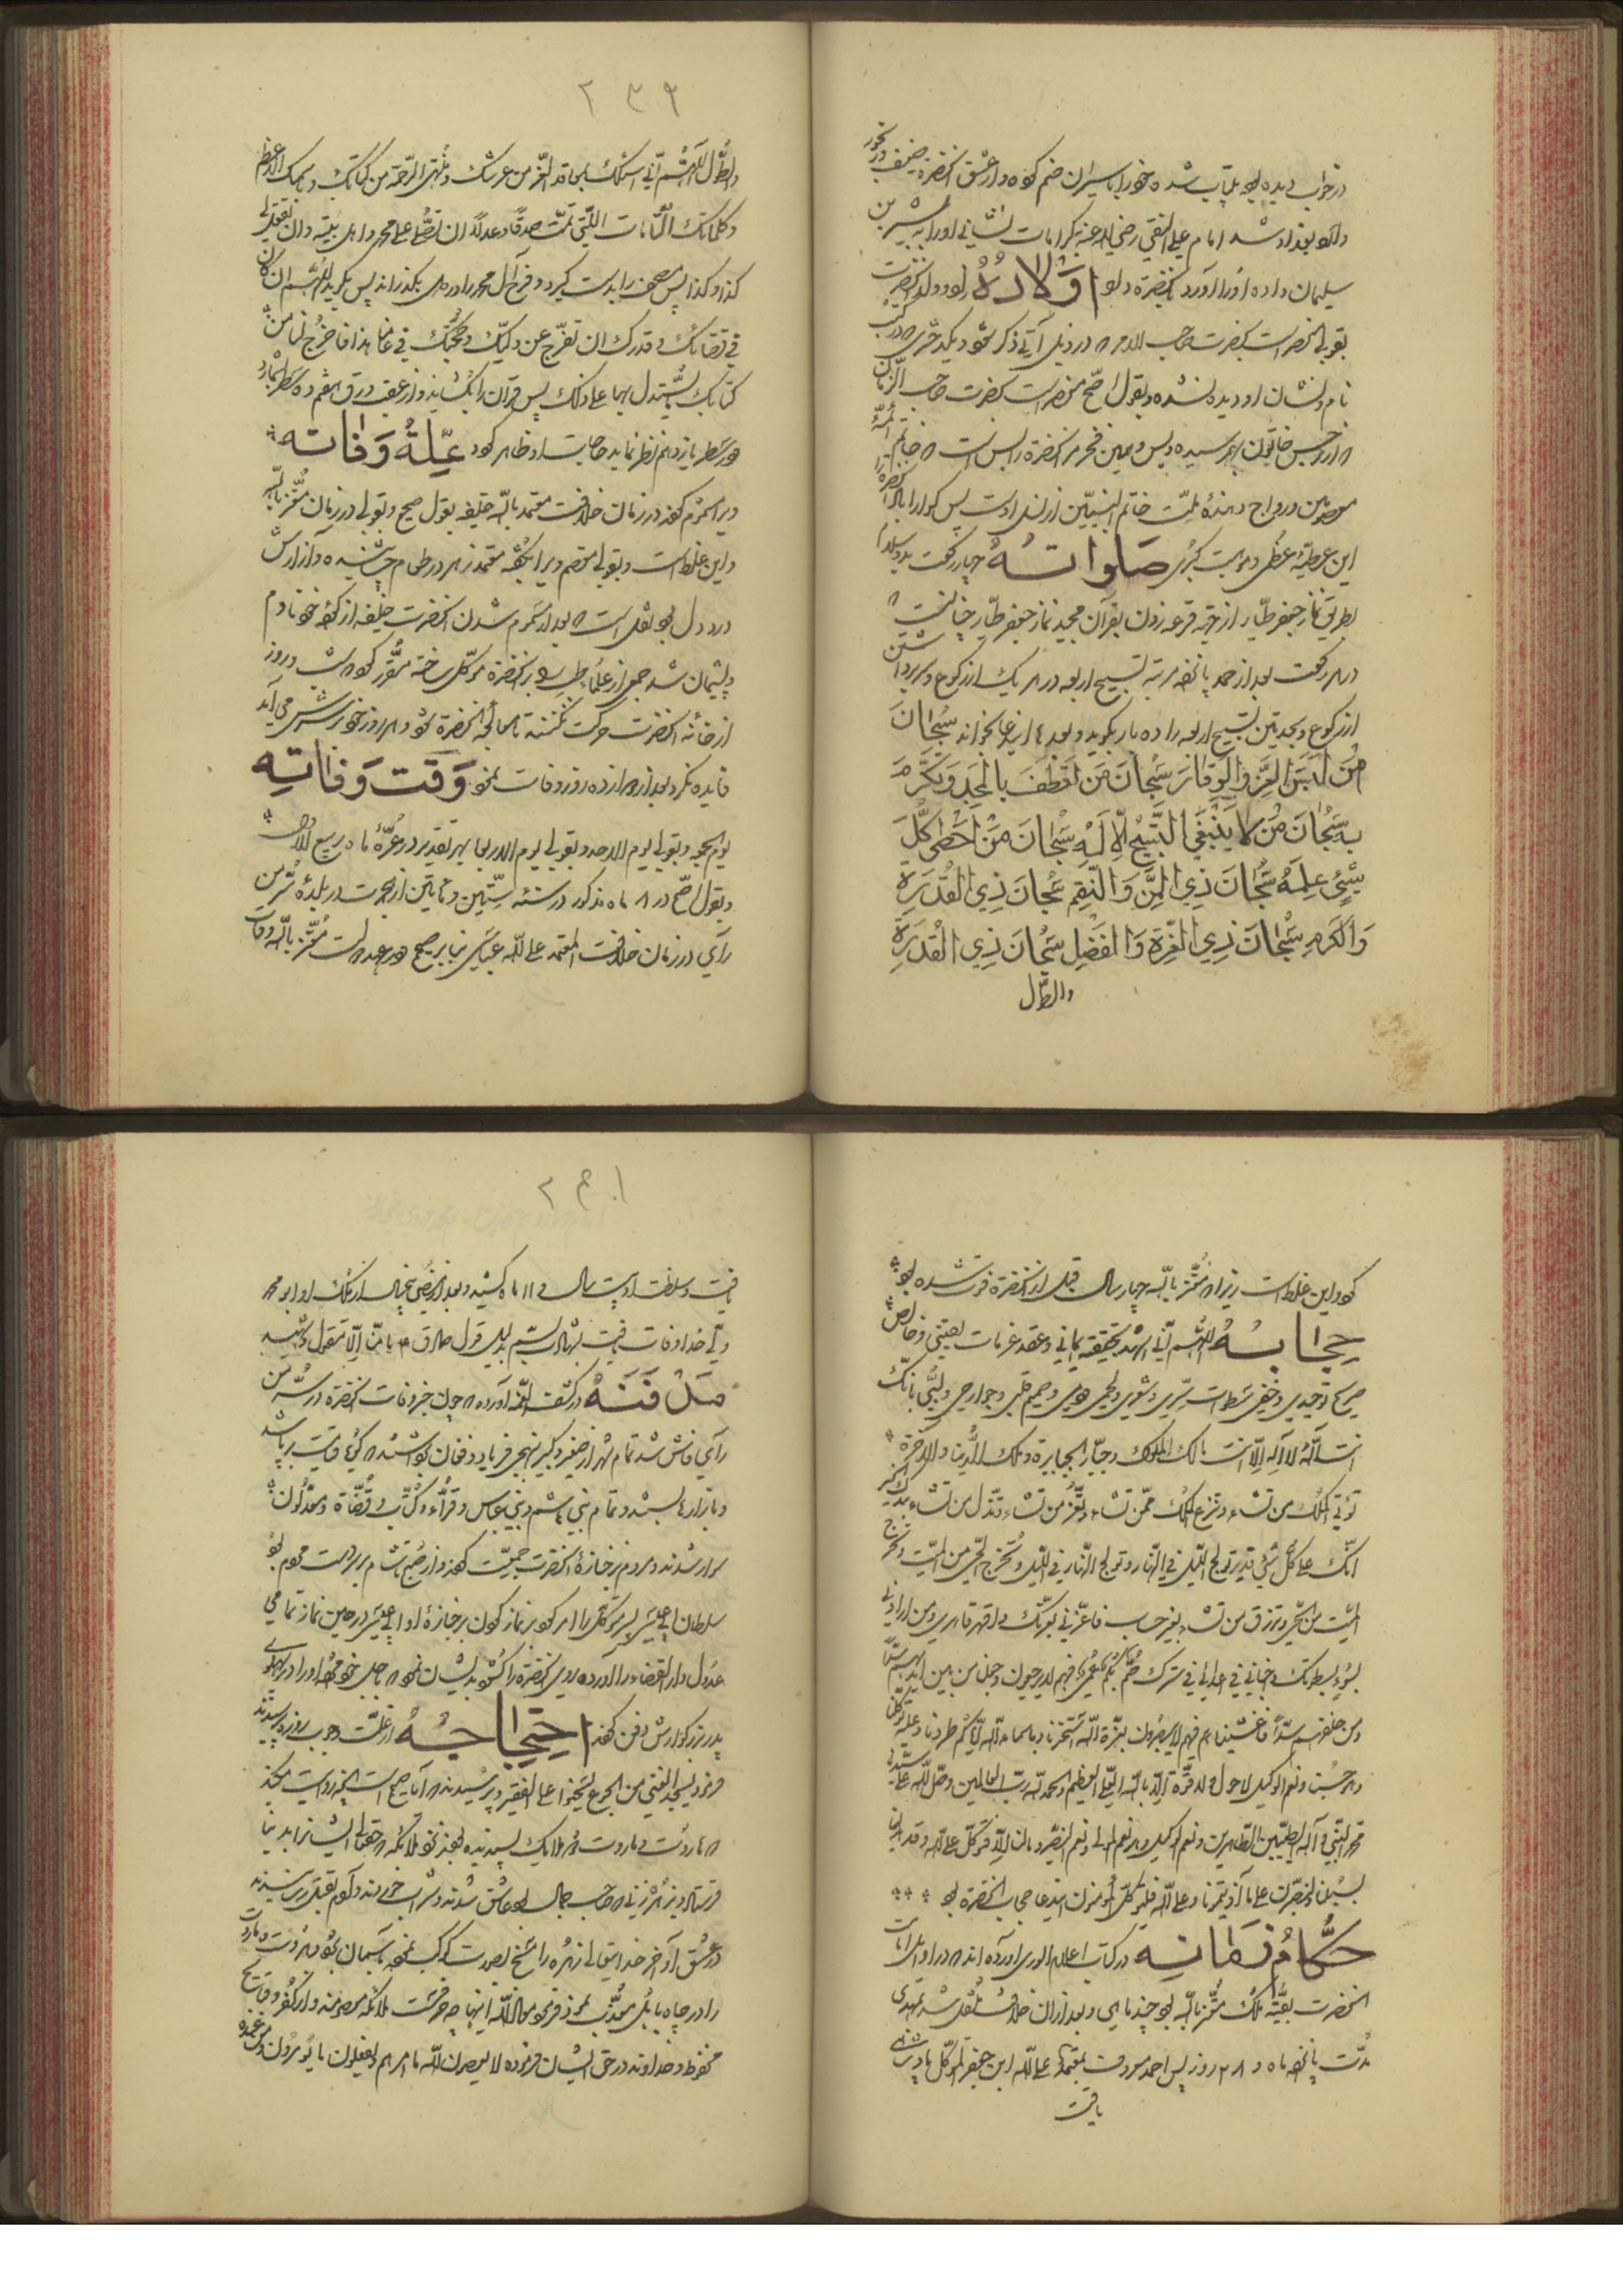 در خواب دیده بود بیتاب شده خود را با سیران ضم کرده و از عشق آنحضرة ضعیف و رنجور
وارد بغداد شد امام علی النقی رضی الله عنه بکرامات نشانی او را به بشیر بن
سلیمان داده او را آورد بحضرة و بود اَوْلادُهُ ولد آنحضرت
بقولی منحصر است بحضرت صاحب الامر در ذیل آتی ذکر شود و یک دختری که در کتب
نام و نشان او دیده نشده و بقول اصح منحصر است بحضرت صاحب الزمان
که از نرجس خاتون بهم رسیده و بس و همین فخر مر آنحضرة را بس است که خاتم ائمه
معصومین و رواج دهندهٔ ملت خاتم النبیین از نسل اوست پس گوارا باد آنحضرة را
این عطیهٔ عظمی و موهبت کبری صَلواتُهُ چهار رکعت بدو سلام
بطریق نماز جعفر طیار از جهة قرعه زدن بقرآن مجید نماز جعفر طیار چنانست که
در هر رکعت بعد از حمد پانزده مرتبه تسبیح اربعه در هر یک از رکوع و سر برداشتن
از رکوع و سجدتین تسبیح اربعه را ده بار بگوید و بعدها این دعا بخواند سُبْحانَ
مَنْ لَبِسَ الْعِزَّ وَالْوَقارَ سُبْحانَ مَنْ تَعَطَّفَ بِالْمَجْدِ وَتَكَرَّمَ
بِهِ سُبْحانَ مَنْ لا يَنْبَغِي التَّسْبِيحُ إِلّا لَهُ سُبْحانَ مَنْ أَحْصى كُلَّ
شَيْءٍ عِلْمُهُ سُبْحانَ ذِي الْمَنِّ وَالنِّعَمِ سُبْحانَ ذِي الْقُدْرَةِ
وَالْكَرَمِ سُبْحانَ ذِي الْعِزَّةِ وَالْفَضْلِ سُبْحانَ ذِي الْقُدْرَةِ
والطَّول
۲۳۹
والطَّول اللّهُمَّ انّی اسئلک بمعاقد العزّ من عرشک و منتهی الرّحمة من کتابک و باسمک الاعظم
و کلماتک التّامّات الّتی تمّت صدقًا و عدلاً ان تصلّی علی محمد و اهل بیته و ان تفعل لی
کذا و کذا پس مصحف را بدست گیرد و فرج آل محمد را در دل بگذراند پس بگوید اللّهم ان کان
فی قضائک و قدرک ان تفرّج عن ولیّک و حجّتک فی عامنا هذا فاخرج لنا من
کتابک نستدل بها علی ذلک پس قرآن را بگشاید و از عقب ورق هفتم ده سطر بشمارد
و بسطر یازدهم نظر نماید حاجت او ظاهر گردد عِلَّةُ وَفاتِه
ویرا مسموم کردند در زمان خلافت معتمد بالله خلیفه بقول صحیح و بقولی در زمان معتز بالله
و این غلط است و بقولی معتصم ویرا بحقه معتمد زهر در طعام چشانیده و از آن ارش
درد دل بود نقل است که بعد از مسموم شدن آنحضرت خلیفه از کردهٔ خود نادم
و پشیمان شد جمعی از علمای طب را بر آنحضرة موکل ساخته مقرر کرد که شب و روز
از خانهٔ آنحضرت حرکت نکنند تا معالجه آنحضرة شود و هر روز خود بپرسش می‌آمد
فایده نکرد بعد از دوازده روز وفات نمود وَقت وَفاتِهِ
یوم الجمعه و بقولی یوم الاحد و بقولی یوم الاربعا بهر تقدیر در غرّهٔ ماه ربیع الاول
و بقول اصح در ۸ ماه مذکور در سنه ستّین و مأتین از هجرت در بلدهٔ سرّ من
رآی در زمان خلافت المعتمد علی الله عباسی بنابر صحیح معتز بالله وفات
کرد و این غلط است زیرا که معتز بالله چهار سال قبل از آنحضرة فوت شده بود
حِجابُهُ اللّهم انّی اشهد بحقیقة ایمانی و عقد عزمات یقینی و خالص
صریح توحیدی و خفی سطوات سرّی و شعری و لحمی و دمی و صمیم قلبی و جوارحی و لبّی بانّک
انت الله لا اله الّا انت مالک الملوک و جبّار الجبابرة و ملک الدّنیا والاخرة
تؤتی الملک من تشاء و تنزع الملک ممّن تشاء و تعزّ من تشاء و تذلّ من تشاء بیدک الخیر
انّک علی کلّ شیء قدیر تولج اللّیل فی النّهار و تولج النّهار فی اللّیل و تخرج الحیّ من المیّت و تخرج
المیّت من الحیّ و ترزق من تشاء بغیر حساب فاعزّنی بعزّک و اقهر قاهری و من ارادنی
بسوء بسطوتک و اخبأنی من اعدائی فی سترک صمّ بکم عمی فهم لا یرجعون و جعلنا من بین ایدیهم سدّا
و من خلفهم سدّاً فاغشیناهم فهم لا یبصرون بعزّة الله استجرنا و باسماء الله ایّاکم طردنا و علیه توکّلنا
و هو حسبنا و نعم الوکیل لا حول و لا قوّة الّا بالله العلیّ العظیم و الحمد لله ربّ العالمین و صلّی الله علی سیّدنا
محمد النّبی و آله الطیّبین الطّاهرین و نعم الوکیل و هو نعم المولی و نعم النّصیر و ما لنا الّا نتوکّل علی الله و قد هدانا
سبلنا و لنصبرنّ علی ما آذیتمونا و علی الله فلیتوکّل المؤمنون این دعا حجاب آنحضرة بود
حُکّامُ زَمانِه در کتاب اعلام الوری آورده‌اند که در اوایل امامت
آنحضرت بقیّهٔ ملک معتز بالله بود چند ماهی و بعد از آن خلافت منتقل شد بمهتدی
مدّت یازده ماه و ۲۸ روز پس احمد معروف بمعتمد علی الله ابن جعفر المتوکل پادشاهی
یافت
۲۴۰۱
یافت و سلطنت او بیست سال و ۱۱ ماه کشید و بعد از مضی پنج سال از ملک او ابو محمد
ولیّ خدا وفات یافت بزهر بسیم بدلیل قول صادق ع ما منّا الّا مقتول او شهید
مَدْفَنُهُ در کشف الغمه آورده که چون خبر وفات آنحضرة در سرّ من
رآی فاش شد تمام شهر از صغیر و کبیر بنهجی فریاد و فغان برداشتند که گویا قیامت برپا شد
و بازارها بستند و تمام بنی هاشم و بنی عباس و قرّاء و کتّاب و قضاة و معدّلون
سوار شدند و مردم بر جنازهٔ آنحضرت جمعیّت کردند و از صبح تا شام بر در هجوم بود
سلطان ابو عیسی پسر متوکل را امر کرد بر نماز کردن بر جنازهٔ او ابو عیسی در حین نماز تمامی
عدول دار القضاء را آورده روی آنحضرة را گشود بدیشان نمود که باجل خود فوت شد او را در پهلوی
پدر بزرگوارش دفن کردند اِحْتِجاجُهُ از علّت وجوب روزه پرسیدند
فرمود لیجد الغنی مسّ الجوع فیحنو علی الفقیر و پرسیدند که آیا صحیح است آنچه روایت میکنند
که هاروت و ماروت دو ملایک پسندیده بودند نزد ملائکه که حق تعالی ایشانرا بدنیا
فرستاد و بزهره زنی که صاحب جمال بود عاشق شدند و شراب خوردند و آدم بقتل رسانیدند
در عشق او آخر خدایتعالی زهره را مسخ بصورت کوکب نمود بآسمان برد و هاروت و ماروت
را در چاه بابل معذّب نمود فرمود معاذ الله اینها چه حرفست ملائکه معصومند و از کفر و قبایح
محفوظ و خداوند در حق ایشان فرموده لا یعصون الله ما امرهم و یفعلون ما یؤمرون و من عنده